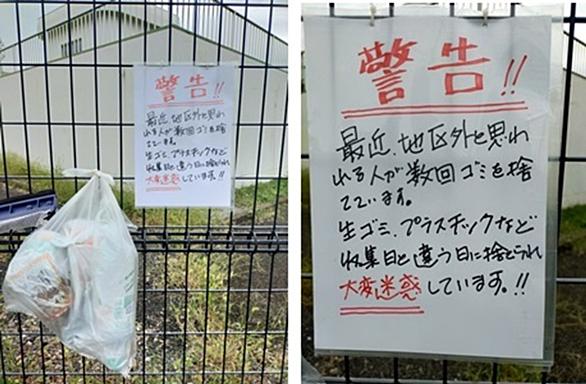 警告!!
最近、地区外と思わ
れる人が数回ゴミを捨
てています。
生ゴミ、プラスチックなど
収集日と違う日に捨てられ
大変迷惑しています。!!
警告!!
最近、地区外と思わ
れる人が数回ゴミを捨
てています。
生ゴミ、プラスチックなど
収集日と違う日に捨てられ
大変迷惑しています。!!